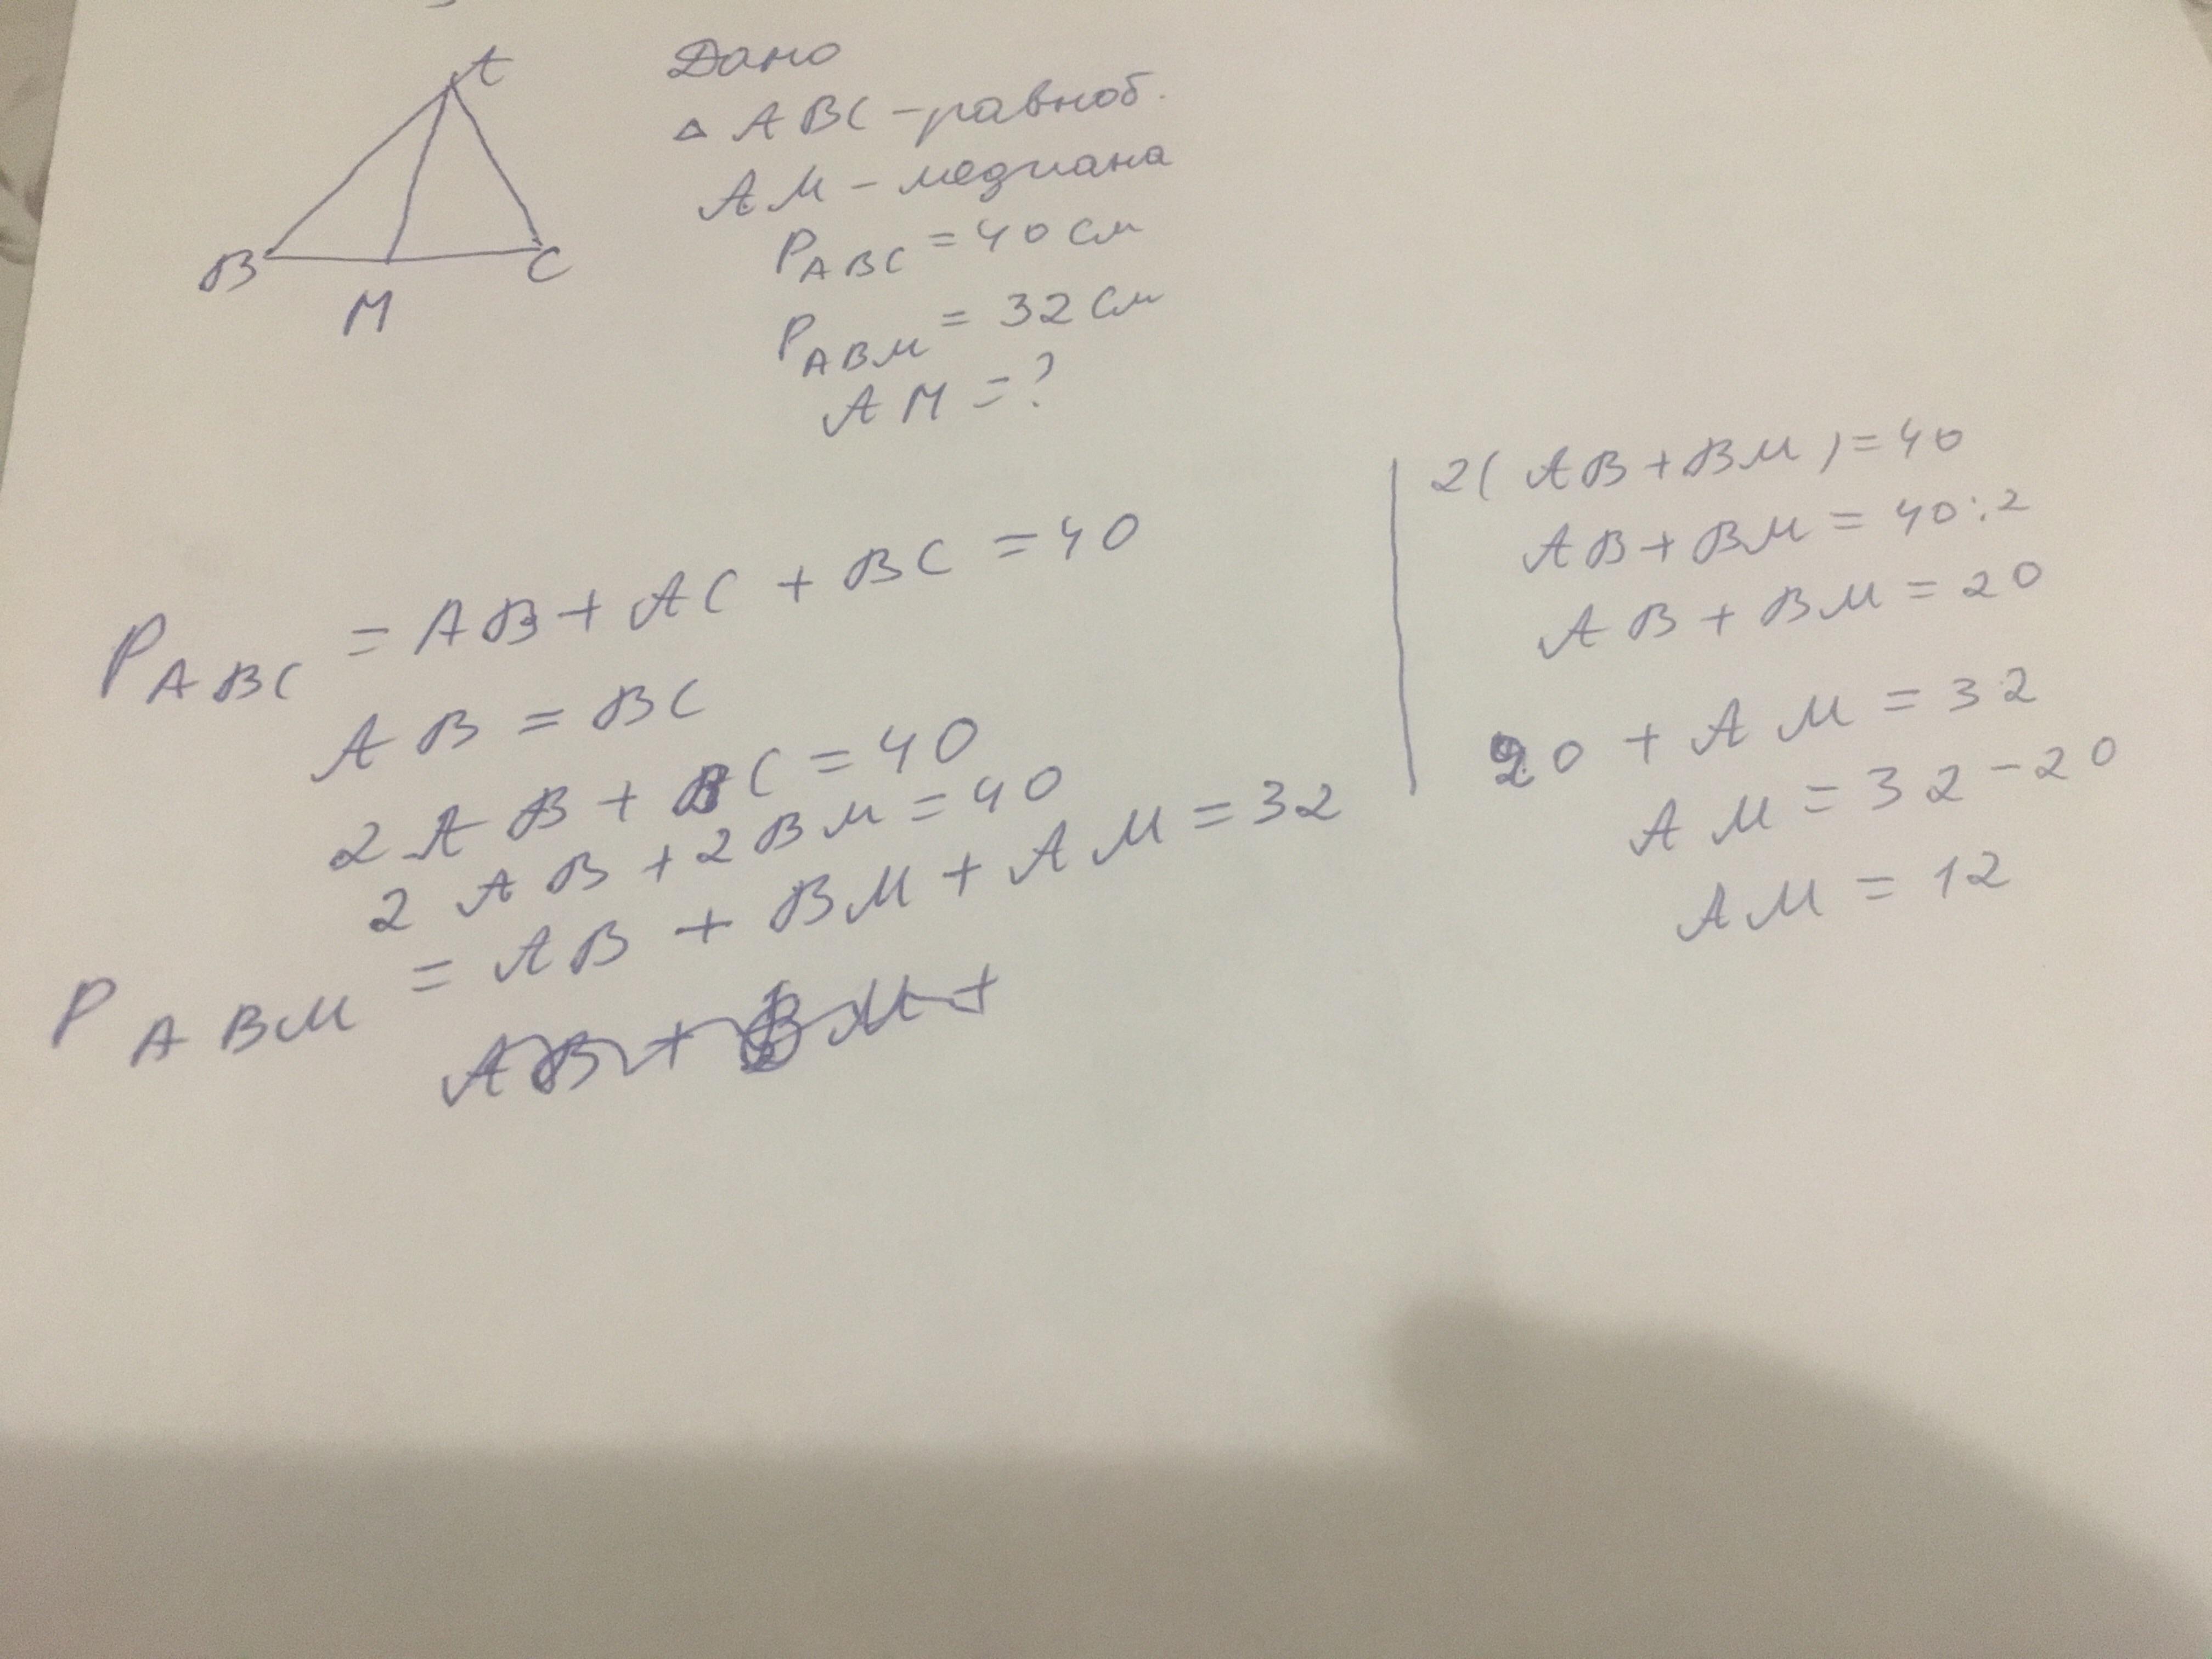 A
B
M
C
Дано
△ ABC - равноб.
AM - медиана
P ABC = 40 см
P ABM = 32 см
AM = ?
P ABC = AB + AC + BC = 40
AB = BC
2 AB + BC = 40
2 AB + 2 BM = 40
P ABM = AB + BM + AM = 32
AB + BM +
2( AB + BM ) = 40
AB + BM = 40 : 2
AB + BM = 20
20 + AM = 32
AM = 32 - 20
AM = 12